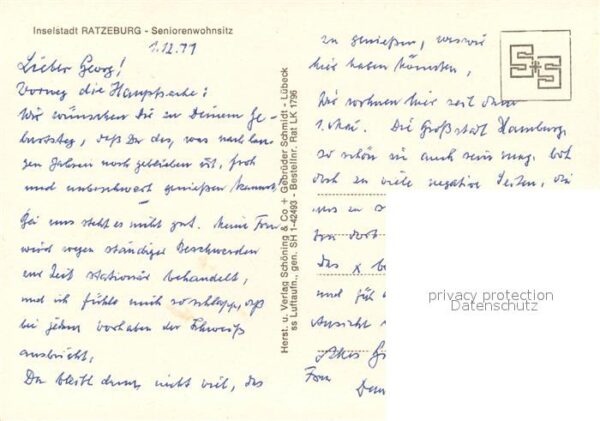 Inselstadt RATZEBURG - Seniorenwohnsitz
1.12.71
Lieber Georg!
Vorweg die Hauptsache:
Wir wünschen Dir zu Deinem Ge-
burtstag, daß Du das, was nach lan-
gen Jahren noch geblieben ist, froh
und unbeschwert genießen kannst.
Bei uns steht es nicht gut. Meine Frau
wird wegen ständiger Beschwerden
zur Zeit stationär behandelt,
und ich fühle mich so schlapp, daß
bei jedem Vorhaben der Schweiß
ausbricht.
Da bleibt denn nicht viel, das
Herst. u. Verlag Schöning & Co + Gebrüder Schmidt - Lübeck
ss Luftaufn., gen. SH 1-42493 - Bestellnr. Rat LK 1796
zu genießen, was wir
hier haben könnten.
Wir wohnen hier seit dem
1. Mai. Die Großstadt Hamburg,
so schön sie auch sein mag, bot
doch zu viele negative Seiten, die
uns zu
von dort
das
und für
Ansicht
Alles
Frau
privacy protection
Datenschutz